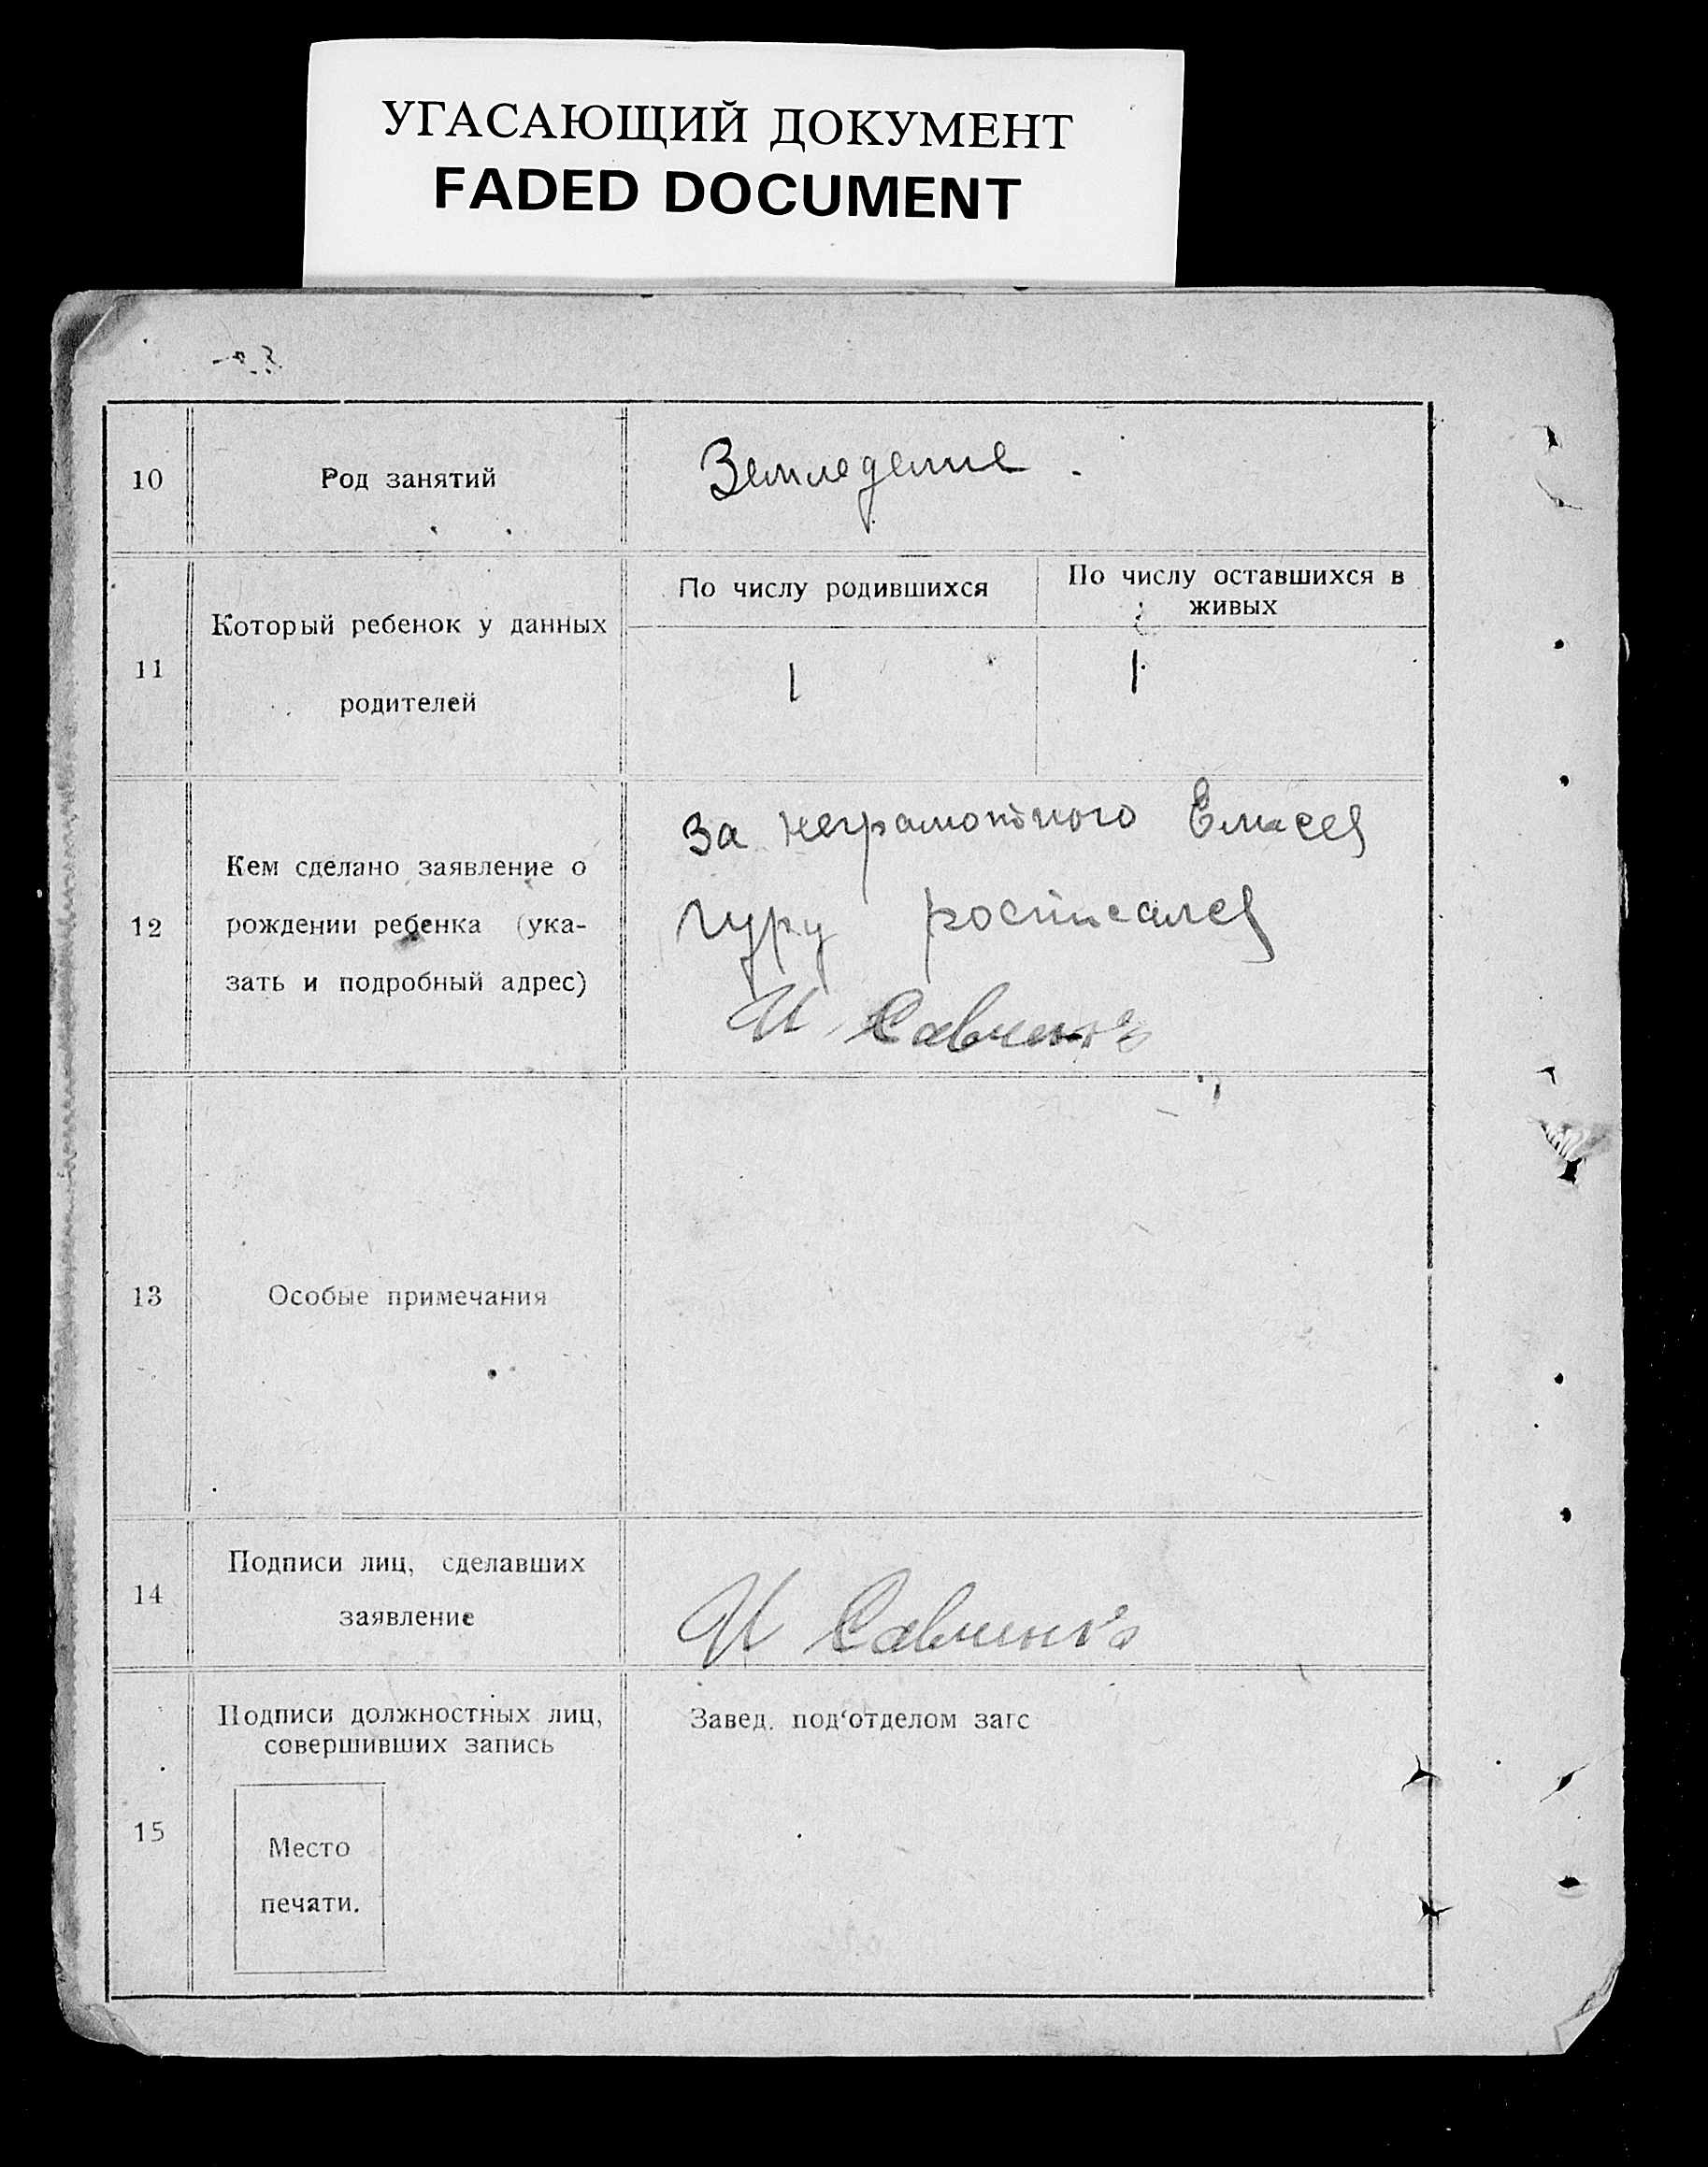 УГАСАЮЩИЙ ДОКУМЕНТ
FADED DOCUMENT
10
Род занятий
Земледелие
11
Который ребенок у данных
родителей
По числу родившихся
1
По числу оставшихся в
живых
1
12
Кем сделано заявление о
рождении ребенка (ука-
зать и подробный адрес)
За неграмотного Елисея
Гуру росписался
И Савченко
13
Особые примечания
14
Подписи лиц, сделавших
заявление
И Савченко
15
Подписи должностных лиц,
совершивших запись
Место
печати.
Завед. под'отделом загс